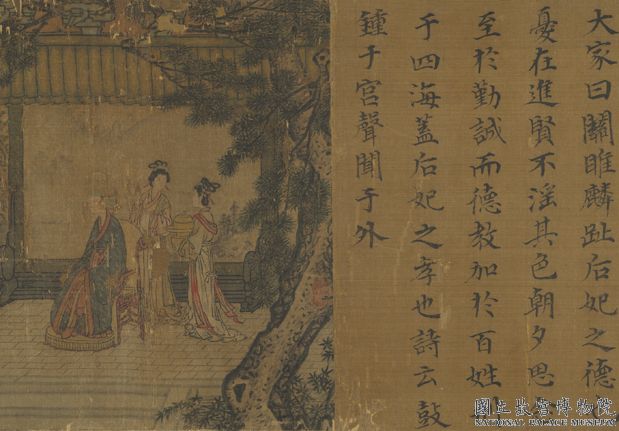 大家曰關雎麟趾后妃之德
憂在進賢不淫其色朝夕思
至於勤誡而德教加於百姓
于四海蓋后妃之孝也詩云鼓
鍾于宮聲聞于外
國立故宮博物院
NATIONAL PALACE MUSEUM